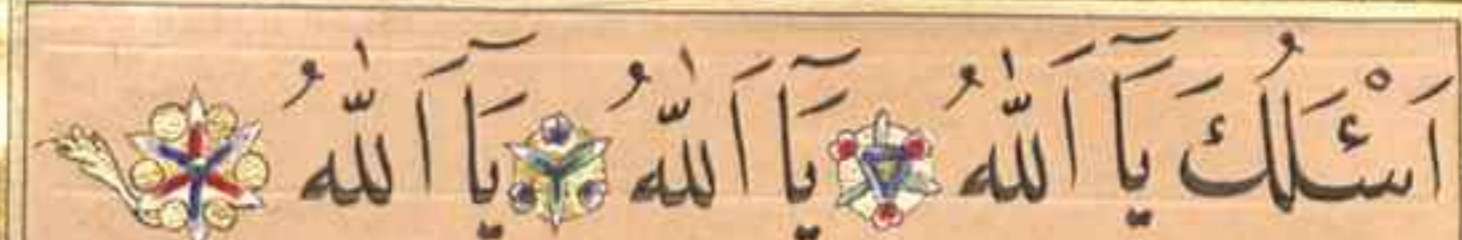 اَسْـَٔلُكَ يَآ اَللّٰهُ يَآ اَللّٰهُ يَآ اَللّٰهُ